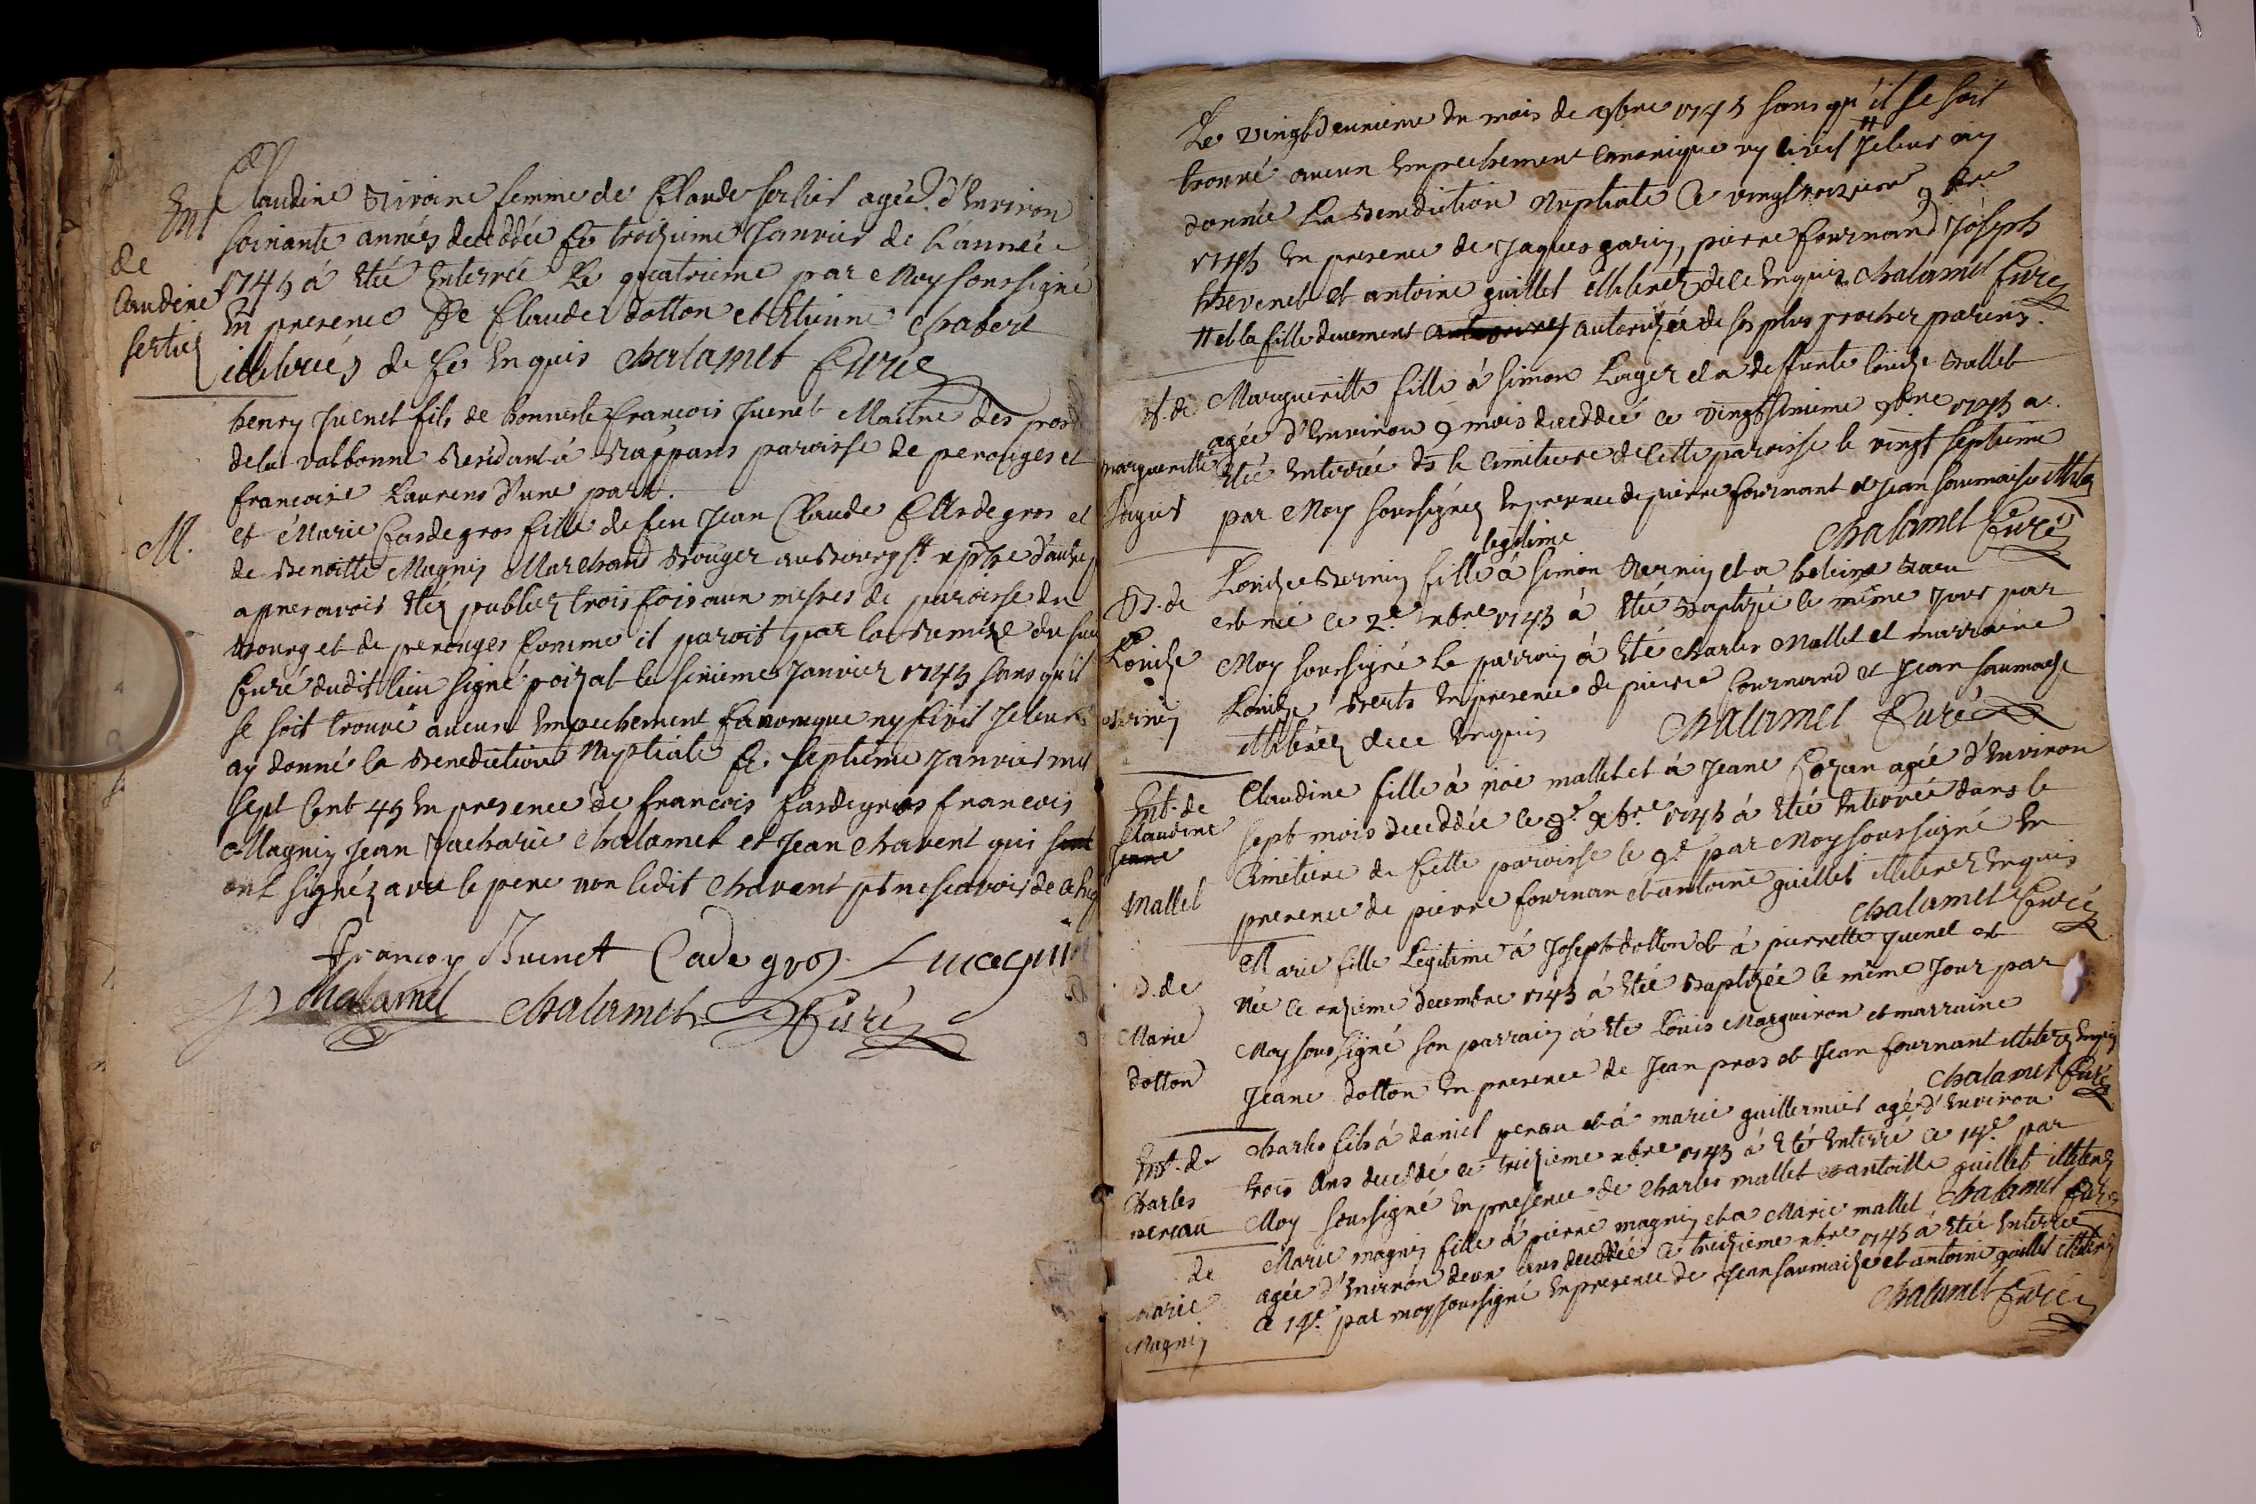 Ent
de
Claudine
Sertier
Claudine Rivoire femme de Claude Sertier agée d'Environ
soixante années decedée Ce troizieme Janvier de L'année
1745 á Eté Enterrée Le quatrieme par Moy soussigné
En presence De Claude dotton et Etienne Chabert
illiterés de Ce Enquis Chalamel Curé
M.
henry Juenet fils de honneste francois Juenet Maitre des
dela valbonne Residant á Rappans paroisse de perouges et
francoise Laurens d'une part.
et Marie Cardegros fille de feu Jean Claude Cardegros et
de Benoitte Magnin Marchand
apres avois Etez publiez trois fois aux messes de paroisse du
Bourg et de perouges Comme il paroit par la Remise du sieur
Curé dudit lieu signé poizat le sixieme Janvier 1745 sans quil
se soit trouvé aucun Empechement Canonique ny Civil Je leur
ay donné la Benediction Nuptiale Ce septieme Janvier mil
sept Cent 45 En presence de francois Cardegros francois
Magnin Jean Zacharie Chalamel et Jean Chavent qui sont
ont signéz avec le pere non ledit Chavent pr ne scavois de Ce
Francoy Buenet Cade gros
Chalamel Chalamel Curé
Le vingt deuxieme du mois de 9bre 1745 sans qu'il se soit
trouvé aucun Empechement Canonique ny Civil # Je leur ay
donnée La Benediction Nuptiale Ce vingt troizieme 9bre
1745 En presence de Jaques garin, pierre fournand Joseph
thevenet et antoine guillet illiterez de Ce Enquis Chalamel Curé
# et la fille deuement autorizée de ses plus proches parens.
Et. de
Marguerite
Lager
Margueritte fille á Simon Lager et a deffunte Louize Ballet
agée d'Environ 9 mois decedée Ce vingtsixieme 9bre 1745 a
Etée Enterrée ds le Cimetiere de Cette paroisse le vingt septieme
par Moy soussignéz En presence de pierre fournant et Jean saumaise illiterez
Chalamel Curé
B. de
Louize
Bernin
legitime
Louize Bernin fille á Simon Bernin et a
est née Ce 2e xbre 1745 á Etée Baptizée le même Jour par
Moy soussigné Le parrain á Eté Charles Mallet et marraine
Louize Berts En presence de pierre fournand et Jean saumaise
illiteréz de Ce Enquis Chalamel Curé
Ent. de
Claudine
Jeane
Mallet
Claudine fille á noé mallet et á Jeane Cozan agée d'Environ
sept mois decedée Ce 8e xbre 1745 á Etée Enterrée dans le
Cimetiere de Cette paroisse le 9e par Moy soussigné En
presence de pierre fournan et antoine guillet illiterez Enquis
Chalamel Curé
B. de
Marie
dotton
Marie fille Legitime á Joseph dotton et á pierrette Juenet est
née Ce onzieme decembre 1745 á Etée Baptizée le même Jour par
Moy soussigné son parrain á Eté Louis Marguiron et marraine
Jeane dotton En presence de Jean pras et Jean fournant illiterez Enquis
Chalamel Curé
Ent. de
Charles
penau
Charles fils á daniel penau et á marie guillermier agé d'Environ
trois Ans decedé Ce treizieme xbre 1745 á Eté Enterré Ce 14e par
Moy soussigné En presence de Charles mallet et antoine guillet illiterez
Chalamel Curé
de
Marie
Magnin
Marie magnin fille á pierre magnin et a Marie mallet
agée d'Environ deux ans decedée Ce treizieme xbre 1745 á Etée Enterrée
Ce 14e par moy soussigné En presence de Jean saumaize et antoine guillet illiterez
Chalamel Curé